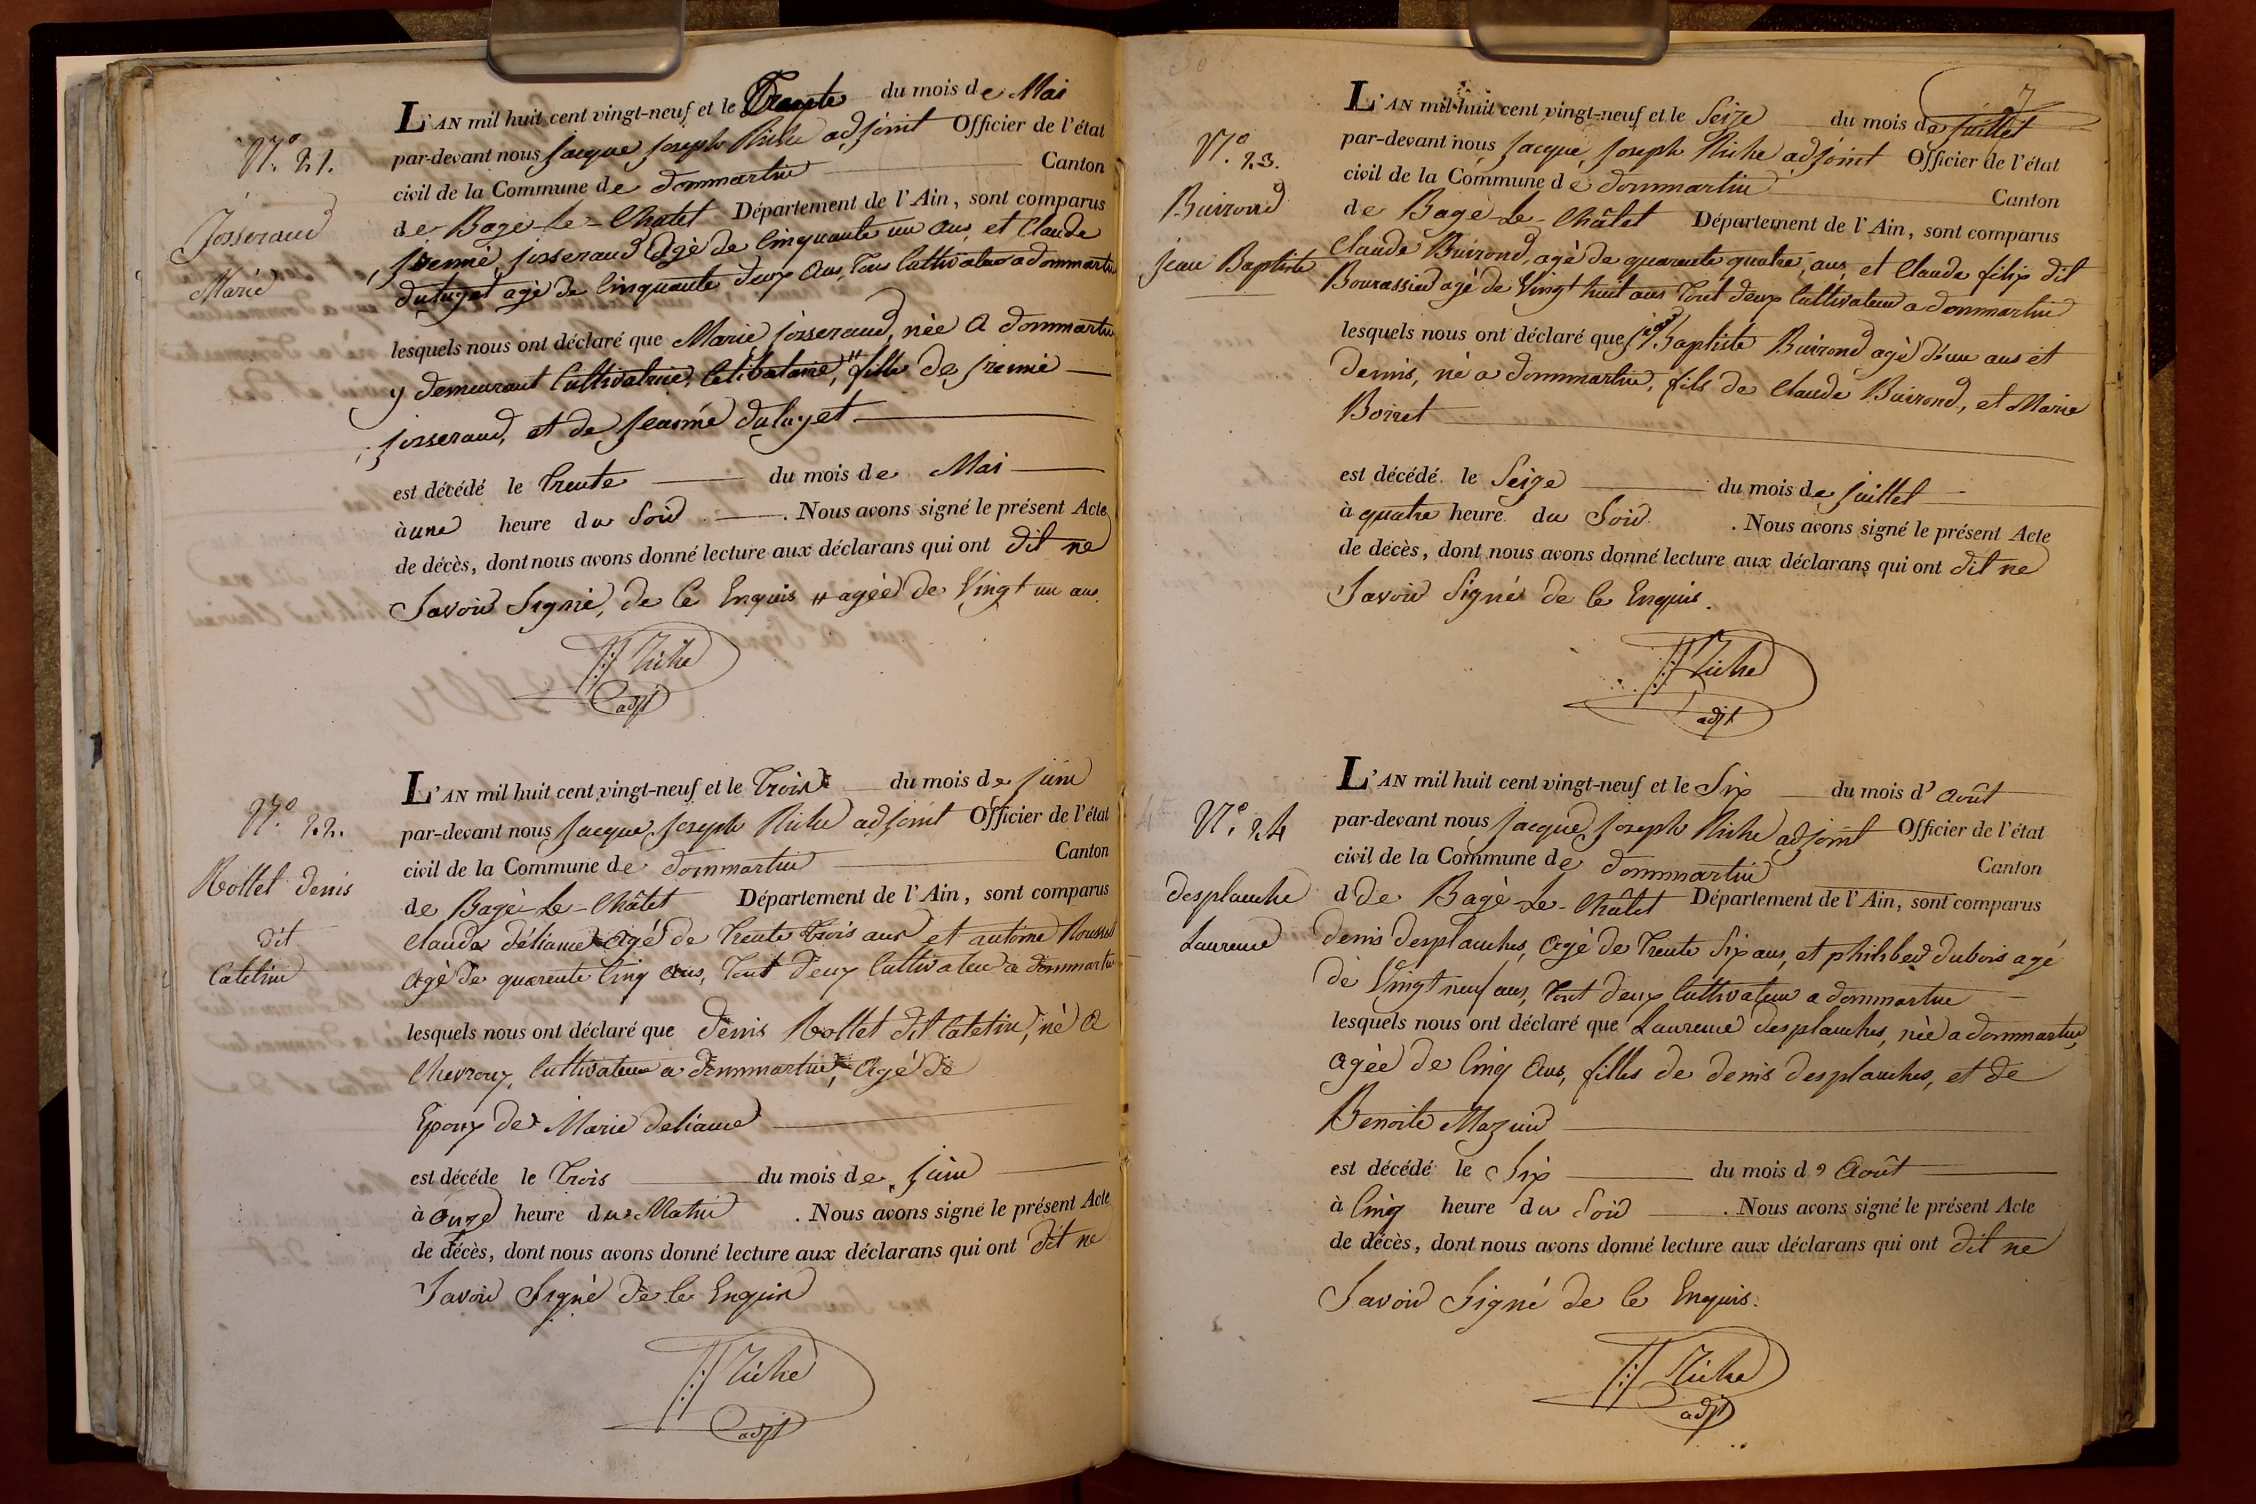 N.° 21.
Josserand
Marie
L'AN mil huit cent vingt-neuf et le Trente du mois de Mai
par-devant nous Jacque Joseph Riche adjoint Officier de l'état
civil de la Commune de dommartin Canton
de Bagé-le-Châtel Département de l'Ain, sont comparus
josserand agé de Cinquante un ans, et Claude
duluyet agé de Cinquante deux ans, tous Cultivateur a dommartin
lesquels nous ont déclaré que Marie josserand, née a dommartin
y demeurant Cultivatrice, Célibataire, " fille de
josserand, et de duluyet
est décédé le Trente du mois de Mai
à une heure du Soir. Nous avons signé le présent Acte
de décès, dont nous avons donné lecture aux déclarans qui ont dit ne
Savoir Signé, de Ce Enquis " agée de Vingt un ans.
JJ Riche
adjt
N.° 22.
Rollet denis
dit
Catelin
L'AN mil huit cent vingt-neuf et le Trois du mois de juin
par-devant nous Jacque Joseph Riche adjoint Officier de l'état
civil de la Commune de dommartin Canton
de Bagé-le-Châtel Département de l'Ain, sont comparus
Claude déliance agé de Trente trois ans et antoine Rousset
agé de quarente Cinq ans, Tout deux Cultivateur a dommartin
lesquels nous ont déclaré que denis Rollet dit Catelin, né a
Chevroux, Cultivateur a dommartin, agé de
Epoux de Marie deliance
est décédé le Trois du mois de juin
à onze heure du Matin. Nous avons signé le présent Acte
de décès, dont nous avons donné lecture aux déclarans qui ont dit ne
Savoir Signé de Ce Enquis
JJ Riche
adjt
7
N.° 23.
Buirond
jean Baptiste
L'AN mil huit cent vingt-neuf et le Seize du mois de juillet
par-devant nous Jacque Joseph Riche adjoint Officier de l'état
civil de la Commune de dommartin Canton
de Bagé-le-Châtel Département de l'Ain, sont comparus
Claude Buirond, agé de quarente quatre ans, et Claude félix dit
Bourassier agé de Vingt huit ans Tout deux Cultivateur a dommartin
lesquels nous ont déclaré que jean Baptiste Buirond agé d'un ans et
demis, né a dommartin, fils de Claude Buirond, et Marie
Boiret
est décédé le Seize du mois de juillet
à quatre heure du Soir. Nous avons signé le présent Acte
de décès, dont nous avons donné lecture aux déclarans qui ont dit ne
Savoir Signé de Ce Enquis.
JJ Riche
adjt
N.° 24
desplanche
Laurence
L'AN mil huit cent vingt-neuf et le Six du mois d'août
par-devant nous Jacque Joseph Riche adjoint Officier de l'état
civil de la Commune de dommartin Canton
d de Bagé-le-Châtel Département de l'Ain, sont comparus
denis desplanches, agé de Trente Six ans, et philiber dubois agé
de Vingt neuf ans, Tout deux Cultivateur a dommartin
lesquels nous ont déclaré que Laurence desplanches, née a dommartin,
agée de Cinq ans, filles de denis desplanches, et de
Benoite Mazuir
est décédé le Six du mois d'août
à Cinq heure du Soir. Nous avons signé le présent Acte
de décès, dont nous avons donné lecture aux déclarans qui ont dit ne
Savoir Signé de Ce Enquis.
JJ Riche
adjt